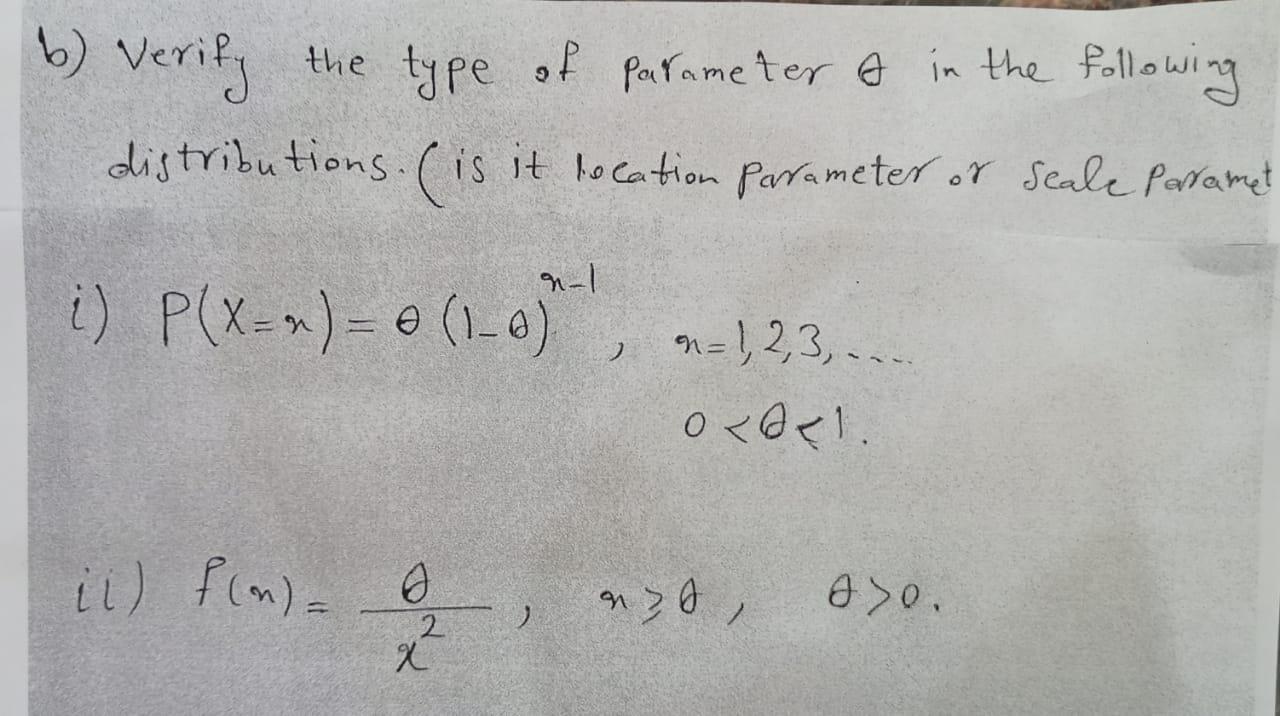 b) Verify the type of parameter θ in the following
distributions. (is it location parameter or scale Paramet
i) P(X=x) = θ (1-θ)^{x-1} , x=1,2,3,.....
0<θ<1.
ii) f(x) = θ/x^2 , x≥θ, θ>0.